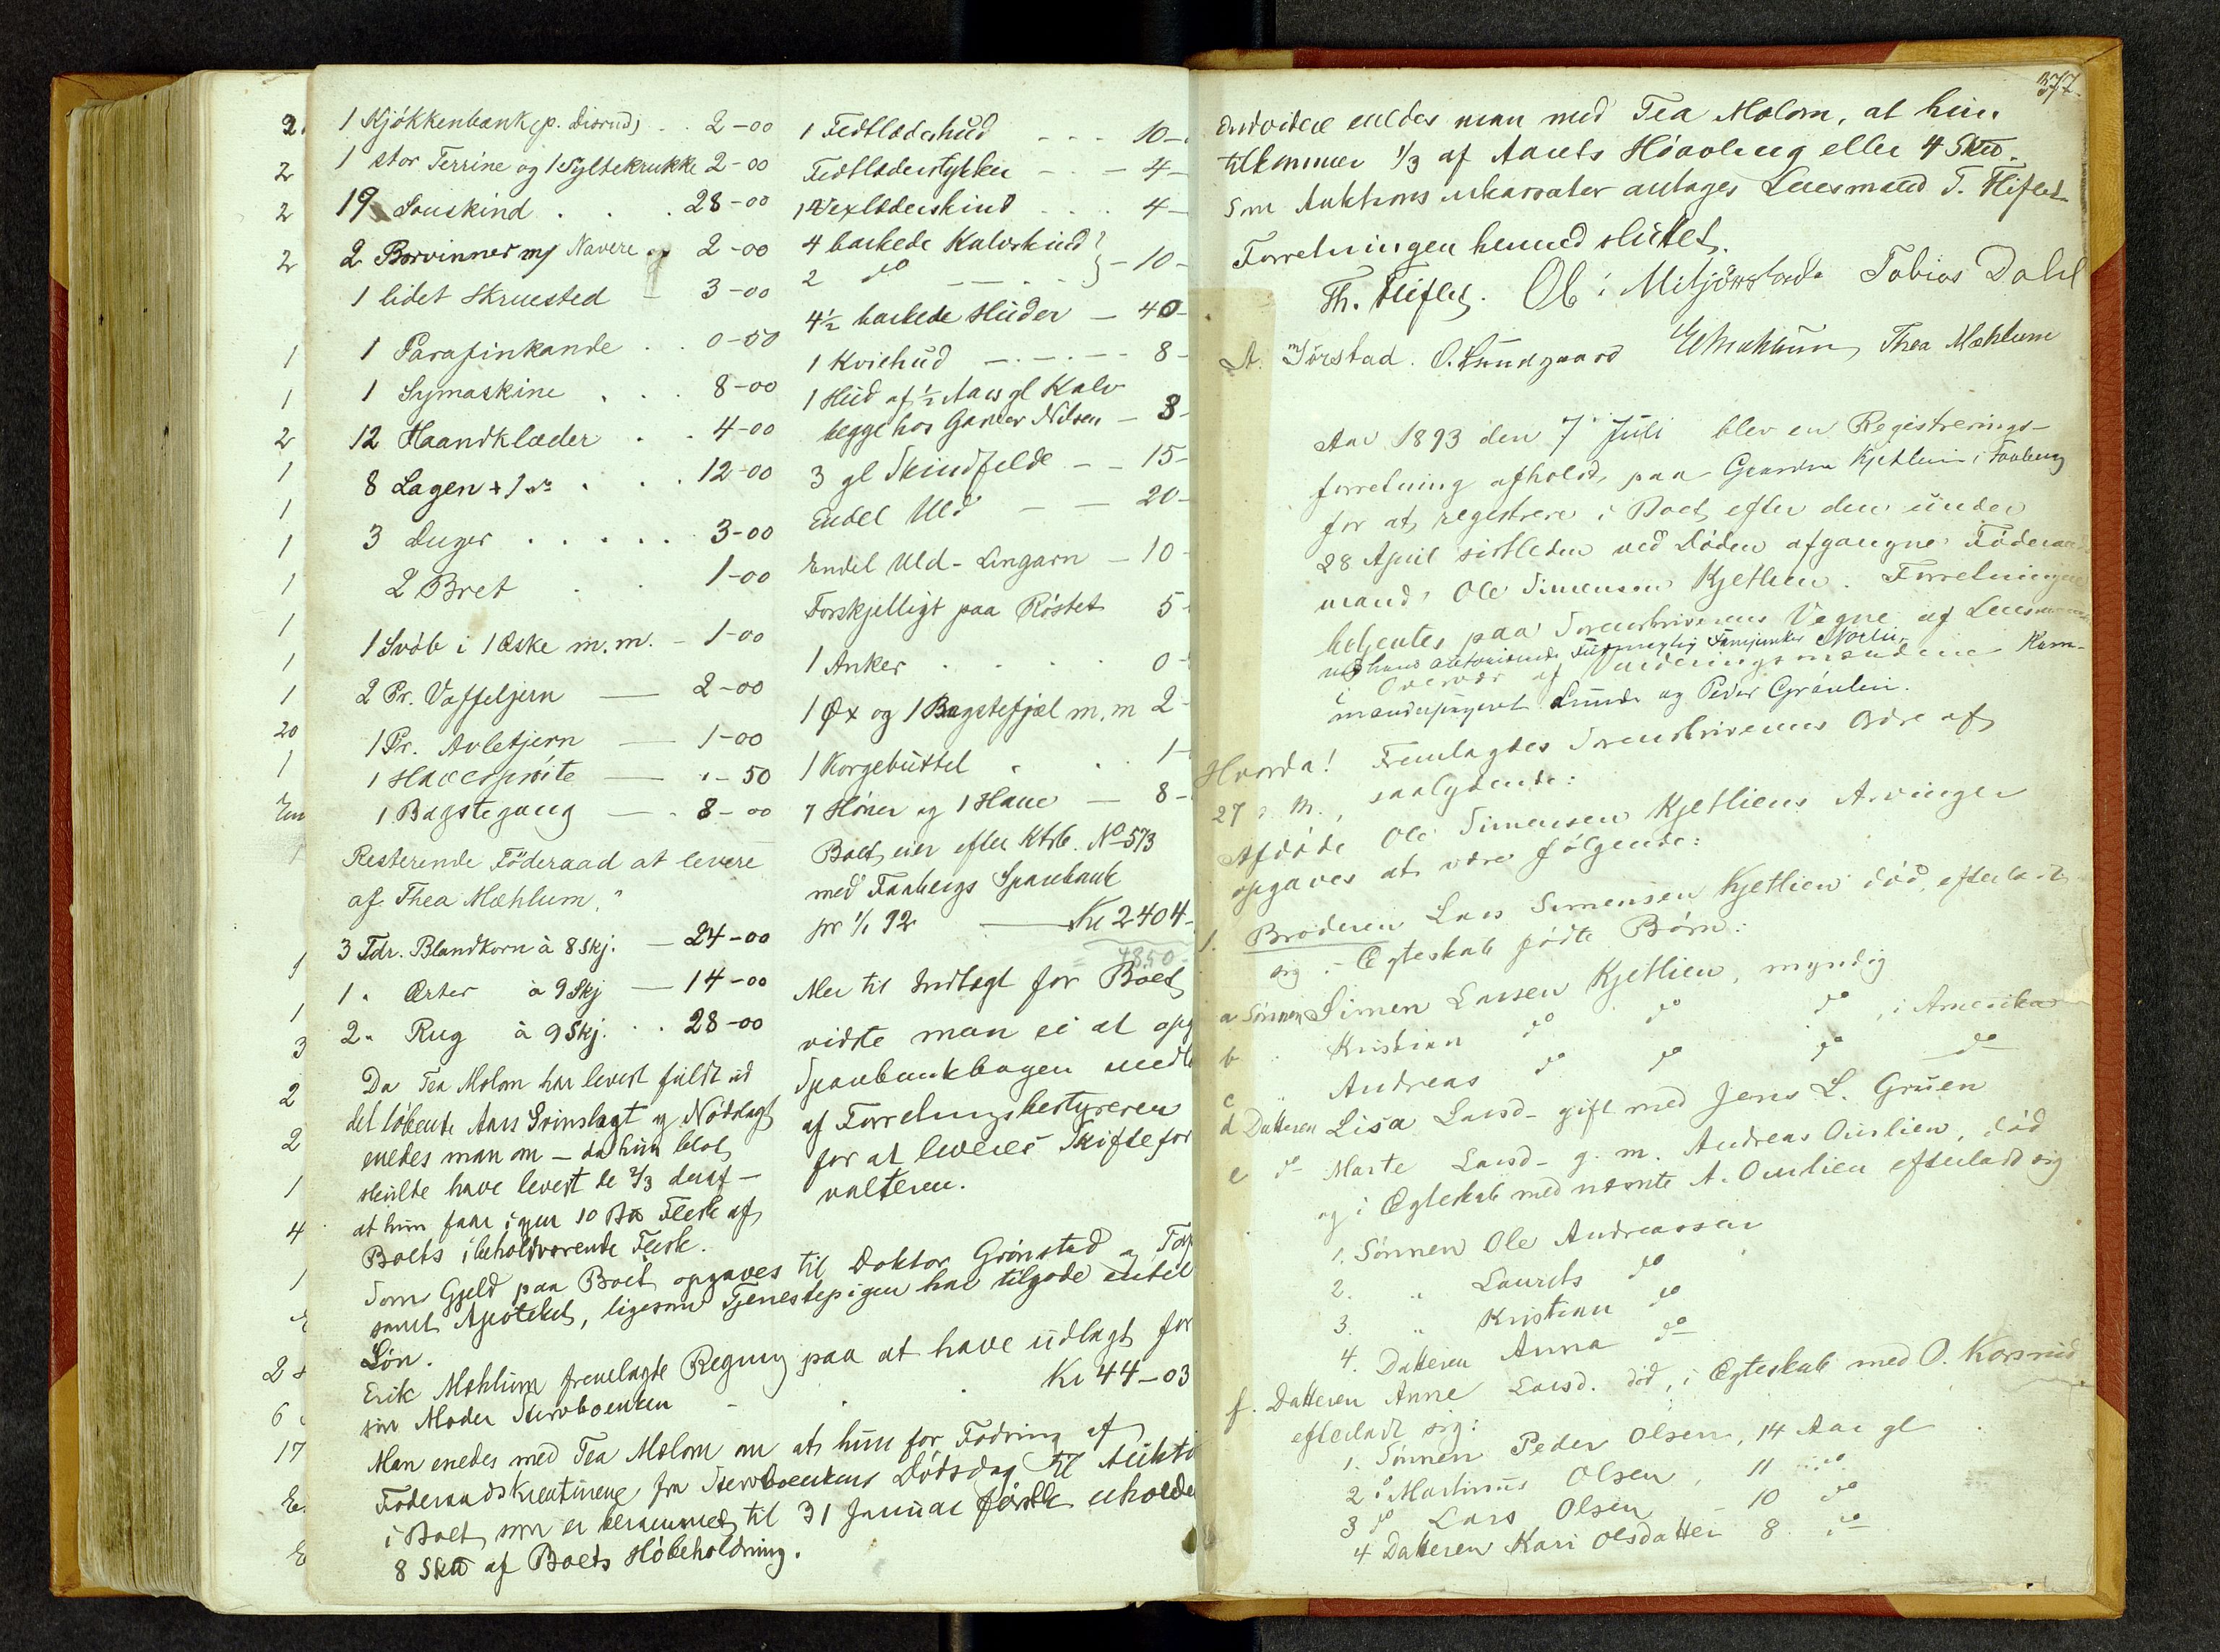 1 Kjøkkenbænk (p. Disrud) . . 2-00
1 stor Terrine og 1 Syltekrukke 2-00
19 Saueskind . . . 28-00
2 Borvinner m/ Navere 2-00
1 lidet Skruested - 3-00
1 Parafinkande . . 0-50
1 Symaskine . . . 8-00
12 Haandklæder . . 4-00
8 Lagen + 1 do . . . 12-00
3 Duger . . . . . 3-00
2 Bret . . 1-00
1 Svøb i 1 Æske m.m. - 1-00
2 Pr. Vaffeljern — 2-00
1 Pr. Avletjern — 1-00
1 Havesprøite — „-50
1 Bagstegang — . 8-00
Resterende Föderaad at levere
af Thea Mæhlum,
3 Tdr. Blandkorn à 8 Skj. — 24-00
1 „ Erter à 9 Skj — 14-00
2 „ Rug à 9 Skj. . . 28-00
Da Tea Mælom har levert fuldt ud
det löbende Aars Svinslagt og Nødslagt
enedes man om — da hun blot
skulde have levert de 2/3 deraf —
at hun faar igjen 10 Flesk af
Boets ibeholdværende Flesk.
1 Fedtlæderhud - - - 10-
Fedtlæderstykker - . - 4-
1 Vexlæderskind . . . 4-
4 barkede Kalvskind }
2 do - - . - } - 10-
4½ barkede Huder — 40-
1 Kviehud — . — . — 8-
1 Hud af ½ Aars gl Kalv
begge hos Garver Nilsen — 3-
3 gl Skindfelde - - 15-
Endel Uld — — 20-
Endel Uld-Lingarn — 10-
Forskjelligt paa Röstet 5-
1 Anker . . . . 0-
1 Øx og 1 Bagstefjæl m.m 2-
1 Korgebuttel . . 1-
7 Höner og 1 Hane — 8-
Boet eier efter Ktrb. No 573
med Faabergs Sparebank
pr 1/1 92 — Kr 2404-
4850-
Mer til Indtægt for Boet
vidste man ei at opg
Sparebankbogen medt
af Forretningsbestyreren
for at leveres Skiftefor
valteren.
Som Gjeld paa Boet opgaves til Doktor Grönstad og
samt Apoteket, ligesom Tjenestepigen har tilgode endel
Løn.
Erik Mæhlum fremlagde Regning paa at have udlagt for
sin Moder Stervboenken - . . Kr 44-03
Man enedes med Tea Mælom om at hun for Födring af
Föderaadskreaturene fra Stervboenkens Dödsdag til Aukti
i Boet som er berammet til 31 Januar förstk erholder
8 Skd af Boets Höbeholdning.
377.
Endvidere enedes man med Tea Mælom, at hun
tilkommer 1/3 af Aarets Höavling eller 4 Skd.
Som Auktions inkassator antages Lensmand T. Fliflet
Forretningen hermed sluttet.
Th. Fliflet. Tobias Dahl
A. Jörstad. O. Lundgaard E Mæhlum, Thea Mæhlum
Aar 1893 den 7 Juli blev en Registrerings-
forretning afholdt paa Gaarden Kjetlien i Faaberg
for at registrere i Boet efter den under
28 April sidstleden ved Döden afgangne Föderaads
mand Ole Simensen Kjetlien. Forretningen
betjentes paa Sorenskriverens Vegne af Lensmanden
ved hans autoriserede Fuldmægtig
i Overvær af Vurderingsmændene Ham-
mændene Lunde og Peder Graulin.
Hvorda! Fremlagdes Sorenskriverens Ordre af
27 d. M., saalydende:
Afdøde Ole Simensen Kjetliens Arvinger
opgaves at være fölgende:
1. Broderen Lars Simensen Kjetlien död, efterladt
sig i Ægteskab födte Börn:
a Sönnen Simen Larsen Kjetlien, myndig
b „ Kristian do do do, i Amerika
c „ Andreas do do do do
d Datteren Lisa Larsd- gift med Jens L. Gruen
e do Marte Larsd- g. m. Andreas Ourlien, död
og i Ægteskab med nævnte A. Ourlien efterladt sig
1. Sönnen Ole Andreassen
2. „ Laurits do
3. „ Kristian do
4. Datteren Anna do
f. Datteren Anne Larsd. död, i Ægteskab med O. Korsrud
efterladt sig:
1. Sönnen Peder Olsen, 14 Aar gl
2 do Martinus Olsen, 11 do
3 do Lars Olsen - 10 do
4 Datteren Kari Olsdatter 8 do